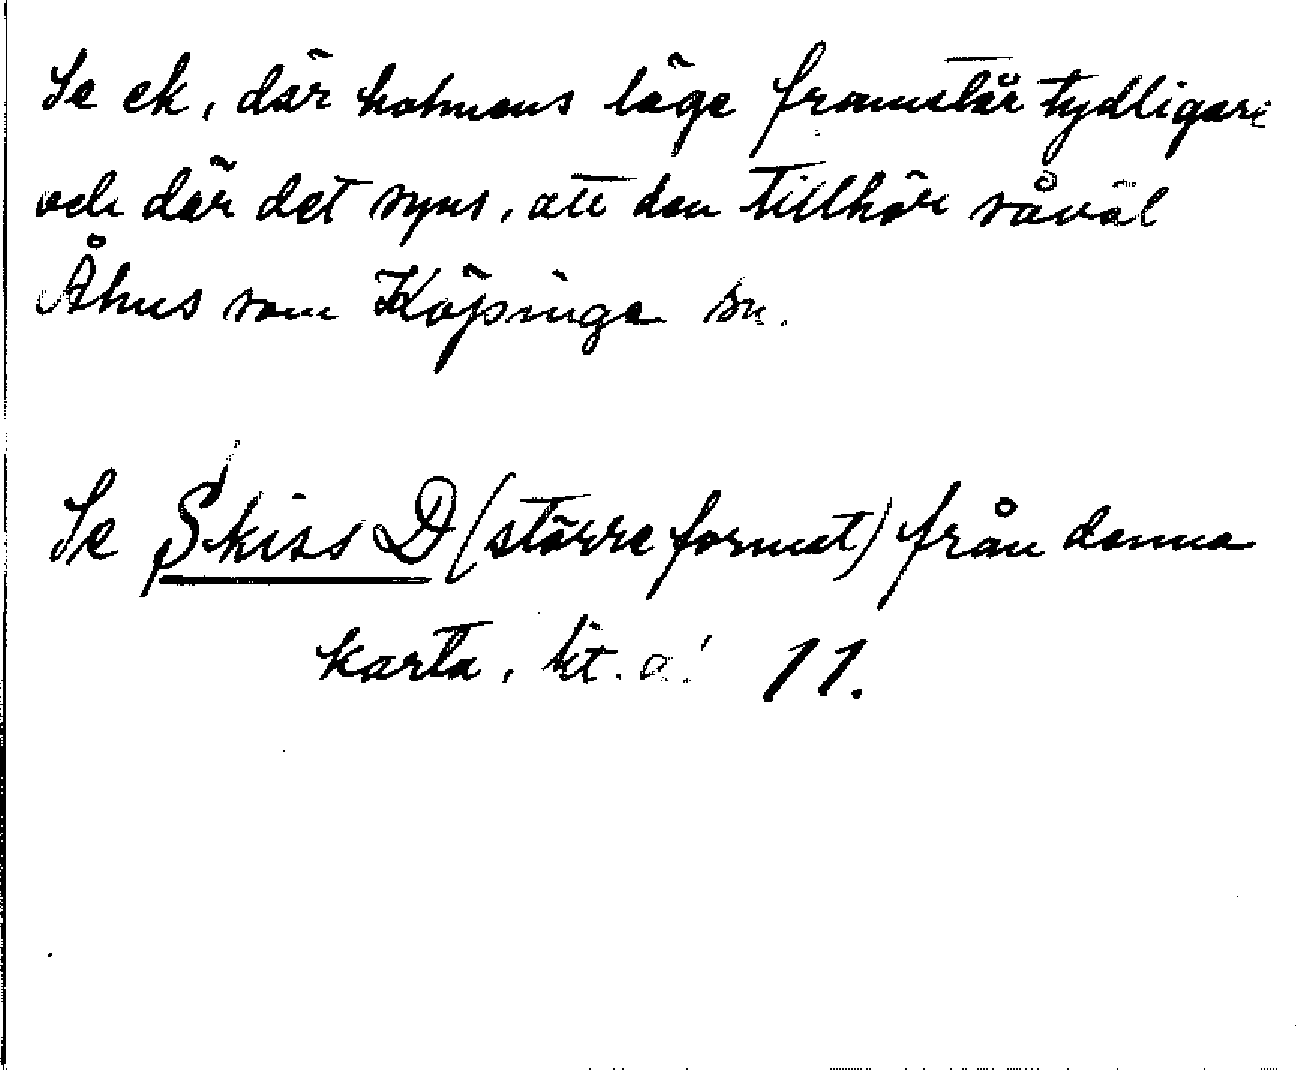 Se ek, där holmens läge framstår tydligare
och där det syns, att den tillhör såväl
Åhus som Köpinge sn.
Se Skiss D (större format) från denna
karta, lit. a! 11.